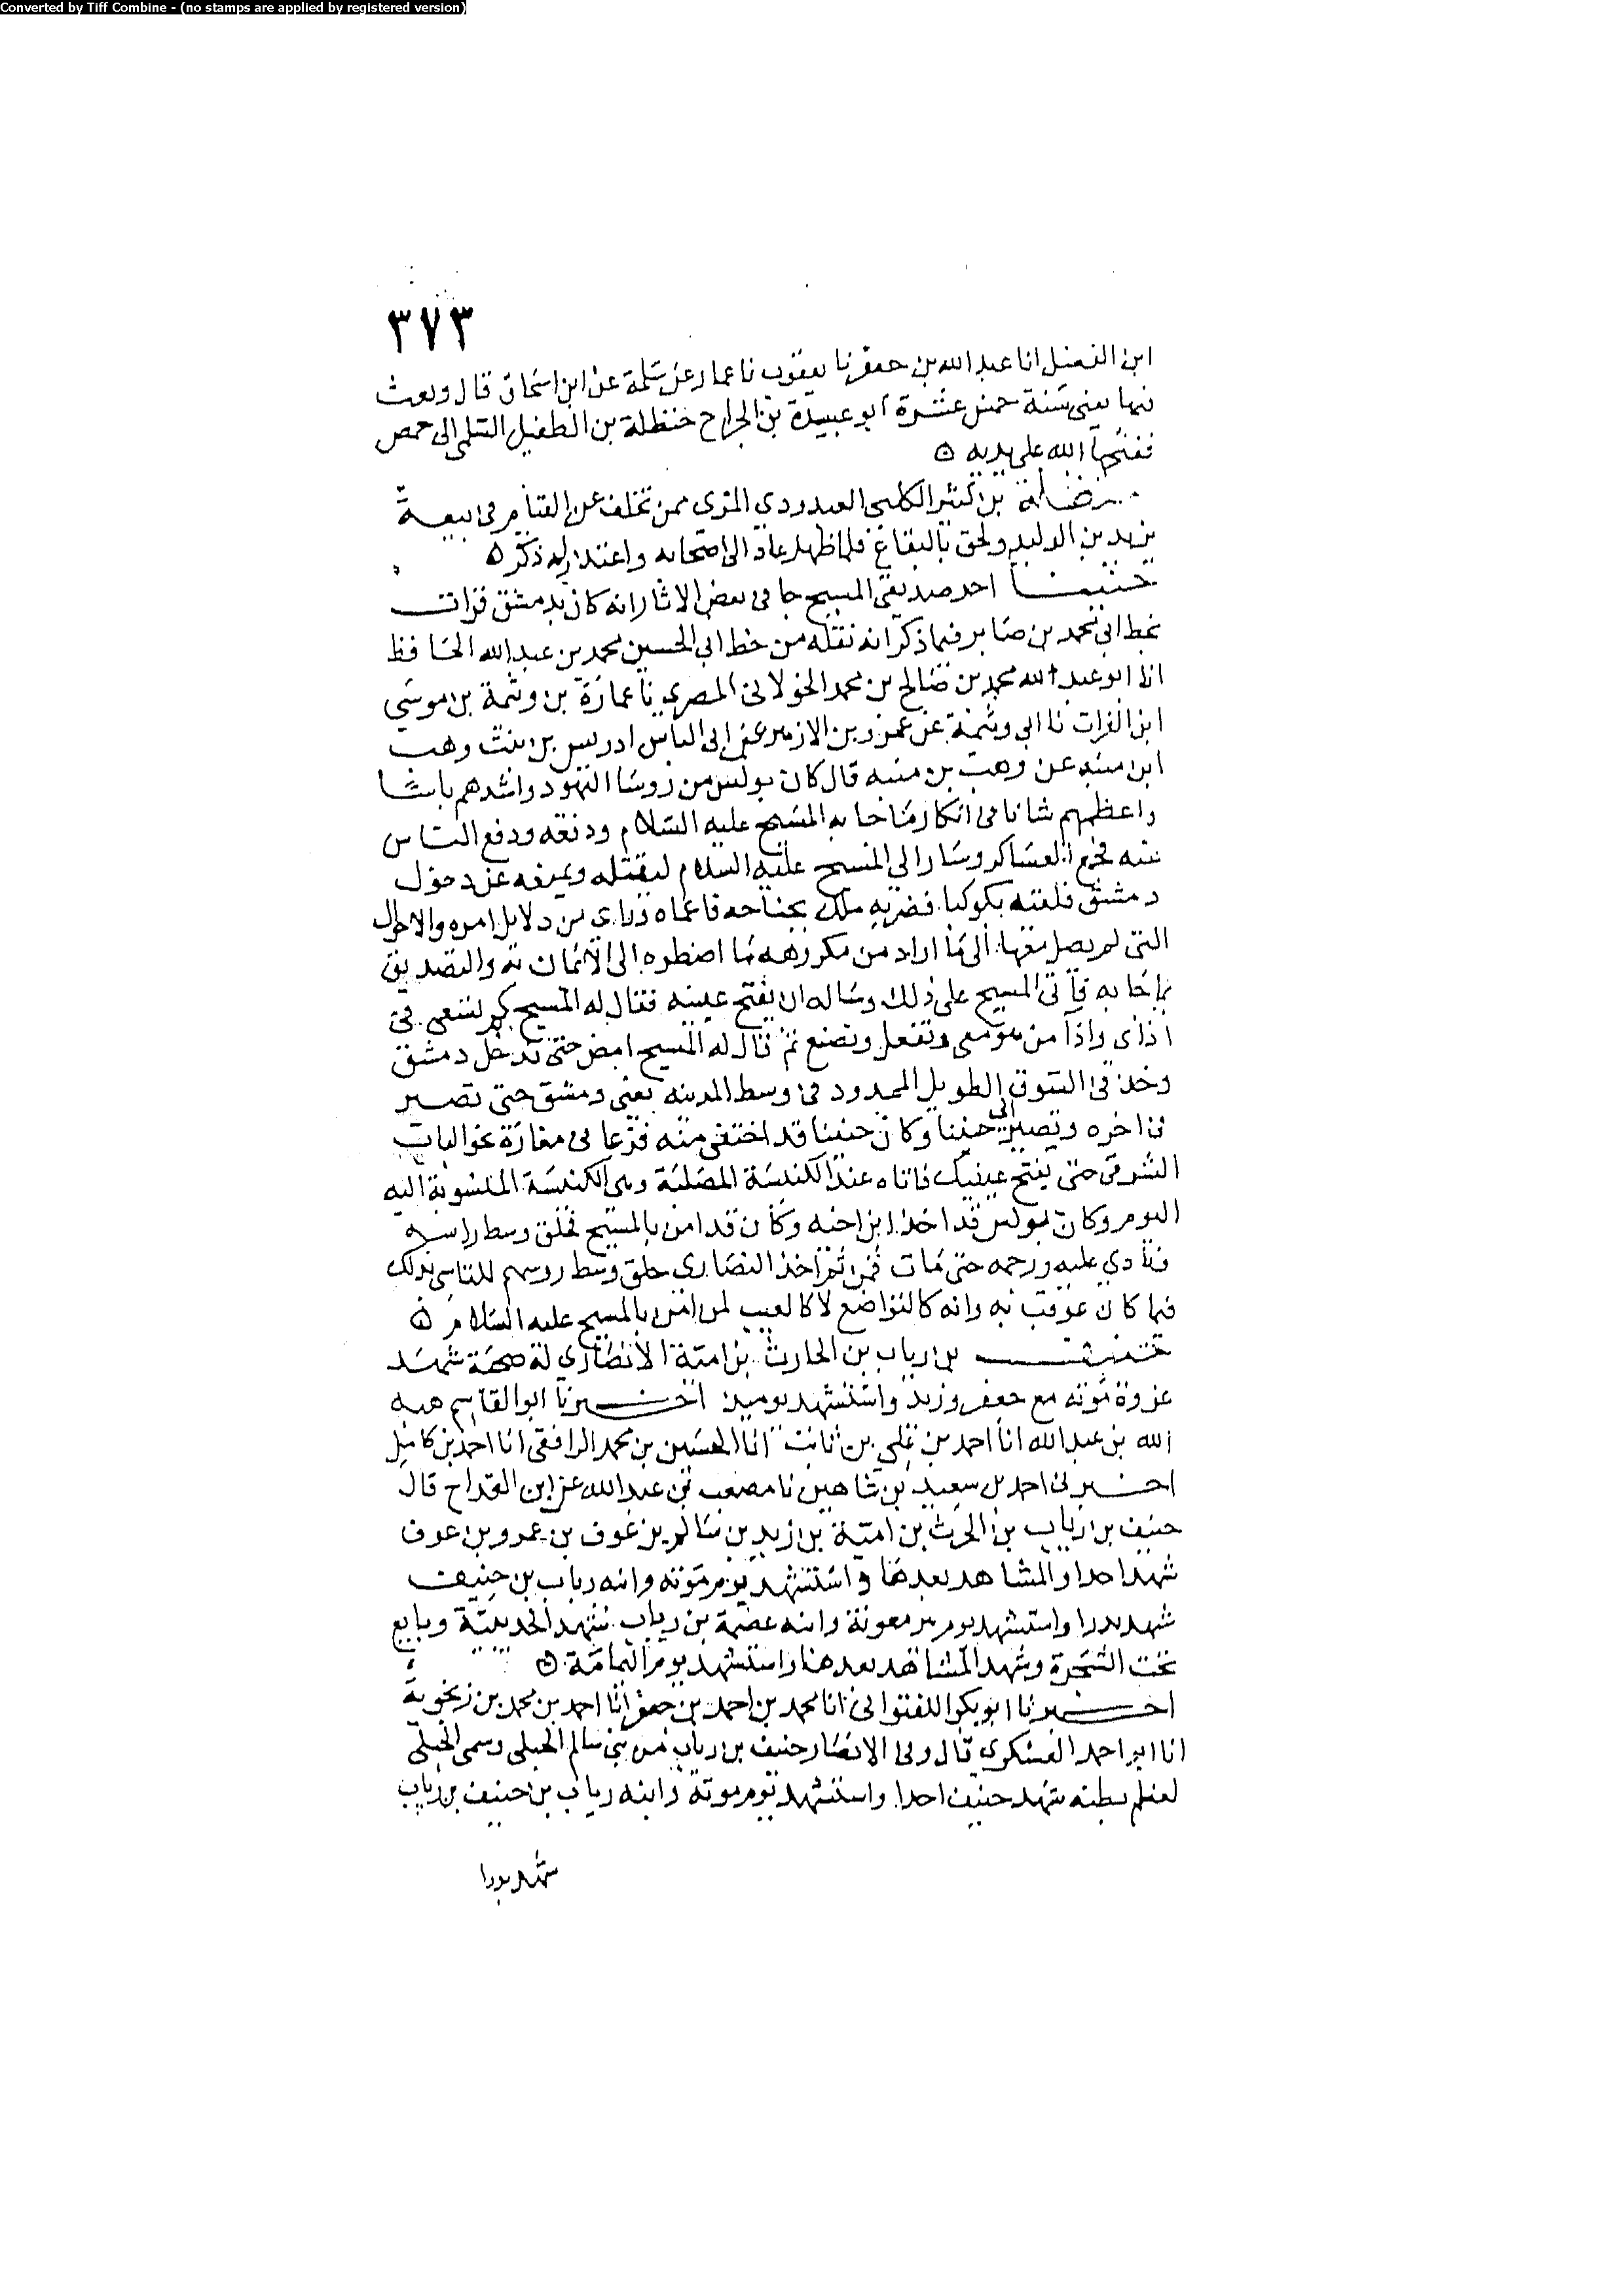 Converted by Tiff Combine - (no stamps are applied by registered version)
٣٧٣
ابن الفضل انا عبد الله بن جعفر نا يعقوب نا عمار عن سلمة عن ابن اسحاق قال وبعث
فيها يعنى سنة خمس عشرة ابو عبيدة بن الجراح حنظلة بن الطفيل السلمى الى حمص
ففتحها الله على يديه
بن الكلبى المزى ممن تخلف عن القيام فى بيعة
يزيد بن الوليد ولحق بالبقاع فلما ظهر عاد الى اصحابه واعتذر له ذكر
حنينا احد صديقى المسيح جا فى بعض الاثار انه كان بدمشق قرات
بخط ابى محمد بن صابر فيما ذكر انه نقله من خط ابى الحسين محمد بن عبد الله الحافظ
انا ابو عبد الله محمد بن صالح بن محمد الخولانى المصرى نا عمارة بن وثيمة بن موسى
ابن الفرات نا ابى وثيمة عن عمرو بن الازهر عن الياس ادريس بن بنت وهب
ابن منبه عن وهب بن منبه قال كان بولس من روسا اليهود واشدهم باسا
واعظمهم شانا فى انكار ما جا به المسيح عليه السلام ودفعه ودفع الناس
عنه فجمع العساكر وسار الى المسيح عليه السلام ليقتله ويمنعه عن دخول
دمشق فلقيه بكوكبا فضربه ملك بجناحه فاعماه وراى من دلايل امره والاحوال
التى لم يصل معها الى ما اراد من مكروهه ما اضطره الى الايمان به والتصديق
بما جا به فاتى المسيح على ذلك وساله ان يفتح عينيه فقال له المسيح كم تسعى فى
اذاى واذا من هو معى وتفعل وتصنع ثم قال له المسيح امض حتى تدخل دمشق
وخذ فى السوق الطويل الممدود فى وسط المدينه يعنى دمشق حتى تصير
فى اخره وتصير الى حنينا وكان حنينا قد اختفى منه فزعا فى مغارة نحو الباب
الشرقى حتى يفتح عينيك فاتاه عند الكنيسة المصلبة وهى الكنيسة المنسوبة اليه
اليوم وكان بولس قد اخذ ابن اخته وكان قد امن بالمسيح فحلق وسط راسه
ونادى عليه ورجمه حتى مات فمن ثم اخذ النصارى حلق وسط روسهم للتاسى بذلك
فيما كان عوقب به وانه كالتواضع لا كالعيب لمن امن بالمسيح عليه السلام
حنيف بن ارياب بن الحارث بن امية الانصارى له صحبة شهد
غزوة موته مع جعفر وزيد واستشهد يوميذ اخبرنا ابو القاسم هبه
الله بن عبد الله انا احمد بن على بن ثابت انا الحسين بن محمد الرافقى انا احمد بن كامل
اخبرنى احمد بن سعيد بن شاهين نا مصعب بن عبد الله عن ابن القداح قال
حنيف بن ارياب بن الحرث بن امية بن زيد بن سالم بن عوف بن عمرو بن عوف
شهد احدا والمشاهد بعدها واستشهد يوم موته وابنه رياب بن حنيف
شهد بدرا واستشهد يوم بير معونة وابنه عصمة بن رياب شهد الحديبية وبايع
تحت الشجرة وشهد المشاهد بعدها واستشهد يوم اليمامة
اخبرنا ابو بكر اللفتوانى انا محمد بن احمد بن جعفر انا احمد بن محمد بن زنجوية
انا ابو احمد العسكرى قال وفى الانصار حنيف بن ارياب من بنى سالم الحبلى وسمى الحبلى
لعظم بطنه شهد حنيف احدا واستشهد يوم موتة وابنه رياب بن حنيف بن رياب
شهد بدرا